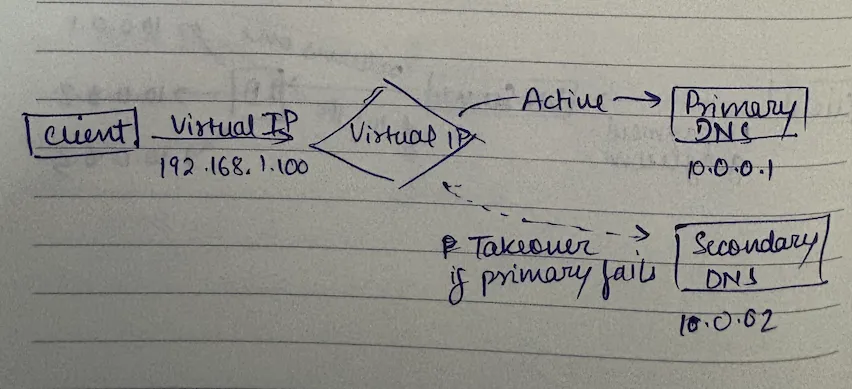 Client
Virtual IP
192.168.1.100
Virtual IP
Active
Primary
DNS
10.0.0.1
Takeover
if primary fails
Secondary
DNS
10.0.02